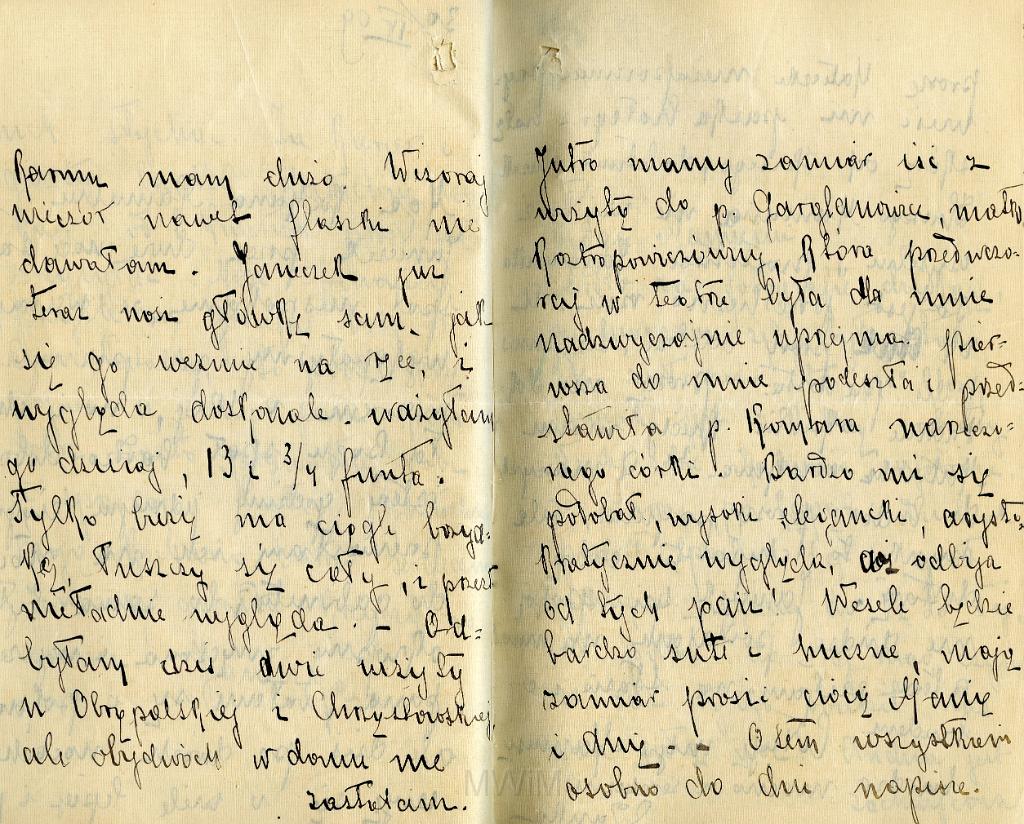 Karmu mam dużo. Wczoraj
wieczór nawet flaszki nie
dawałam. Janeczek już
teraz nosi główkę sam. jak
się go weźmie na ręce, i
wygląda, doskonale. ważyłam
go dzisiaj, 13 i 3/4 funta.
Tylko buzię ma ciągle brzyd-
ką, łuszczy się cały, i przez
nieładnie wygląda. - Od-
byłam dziś dwie wizyty
u Obrąpalskiej i Chrzystowskiej,
ale obydwóch w domu nie
zastałam.
Jutro mamy zamiar iść z
wizytą do p. matki
Roztropowiczówny, która przedwczo-
raj w teatrze była dla mnie
nadzwyczajnie uprzejma. pier-
wsza do mnie podeszła i przed-
stawiła p. narzeczo-
nego córki. Bardzo mi się
podobał, wysoki elegancki, arysto-
kratycznie wygląda, aż odbija
od tych pań! Wesele będzie
bardzo sute i huczne, mają
zamiar prosić ciocię Manię
i Anię - - O tem wszystkiem
osobno do Ani napiszę.
MWiM